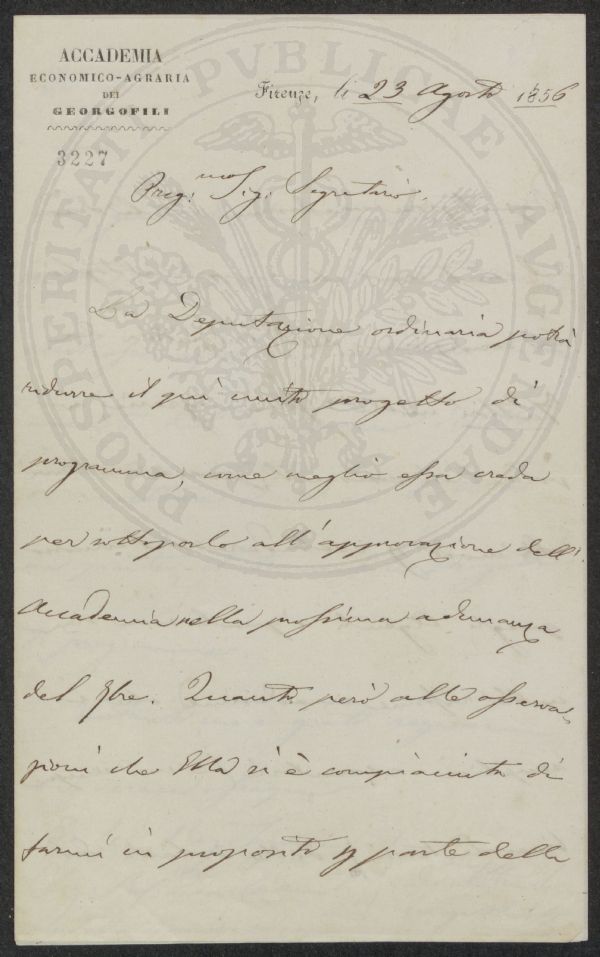 ACCADEMIA
ECONOMICO-AGRARIA
DEI
GEORGOFILI
3227
Firenze, li 23 Agosto 1856
Preg:mo Sig: Segretario.
PROSPERITATI PVBLICAE AVGENDAE
La Deputazione ordinaria potrà
ridurre il quì unito progetto di
programma, come meglio essa creda
per sottoporlo all'approvazione dell'
Accademia nella prossima adunanza
del 7bre. Quanto però alle osserva
zioni che Ella si è compiaciuta di
farmi in proposito p parte della